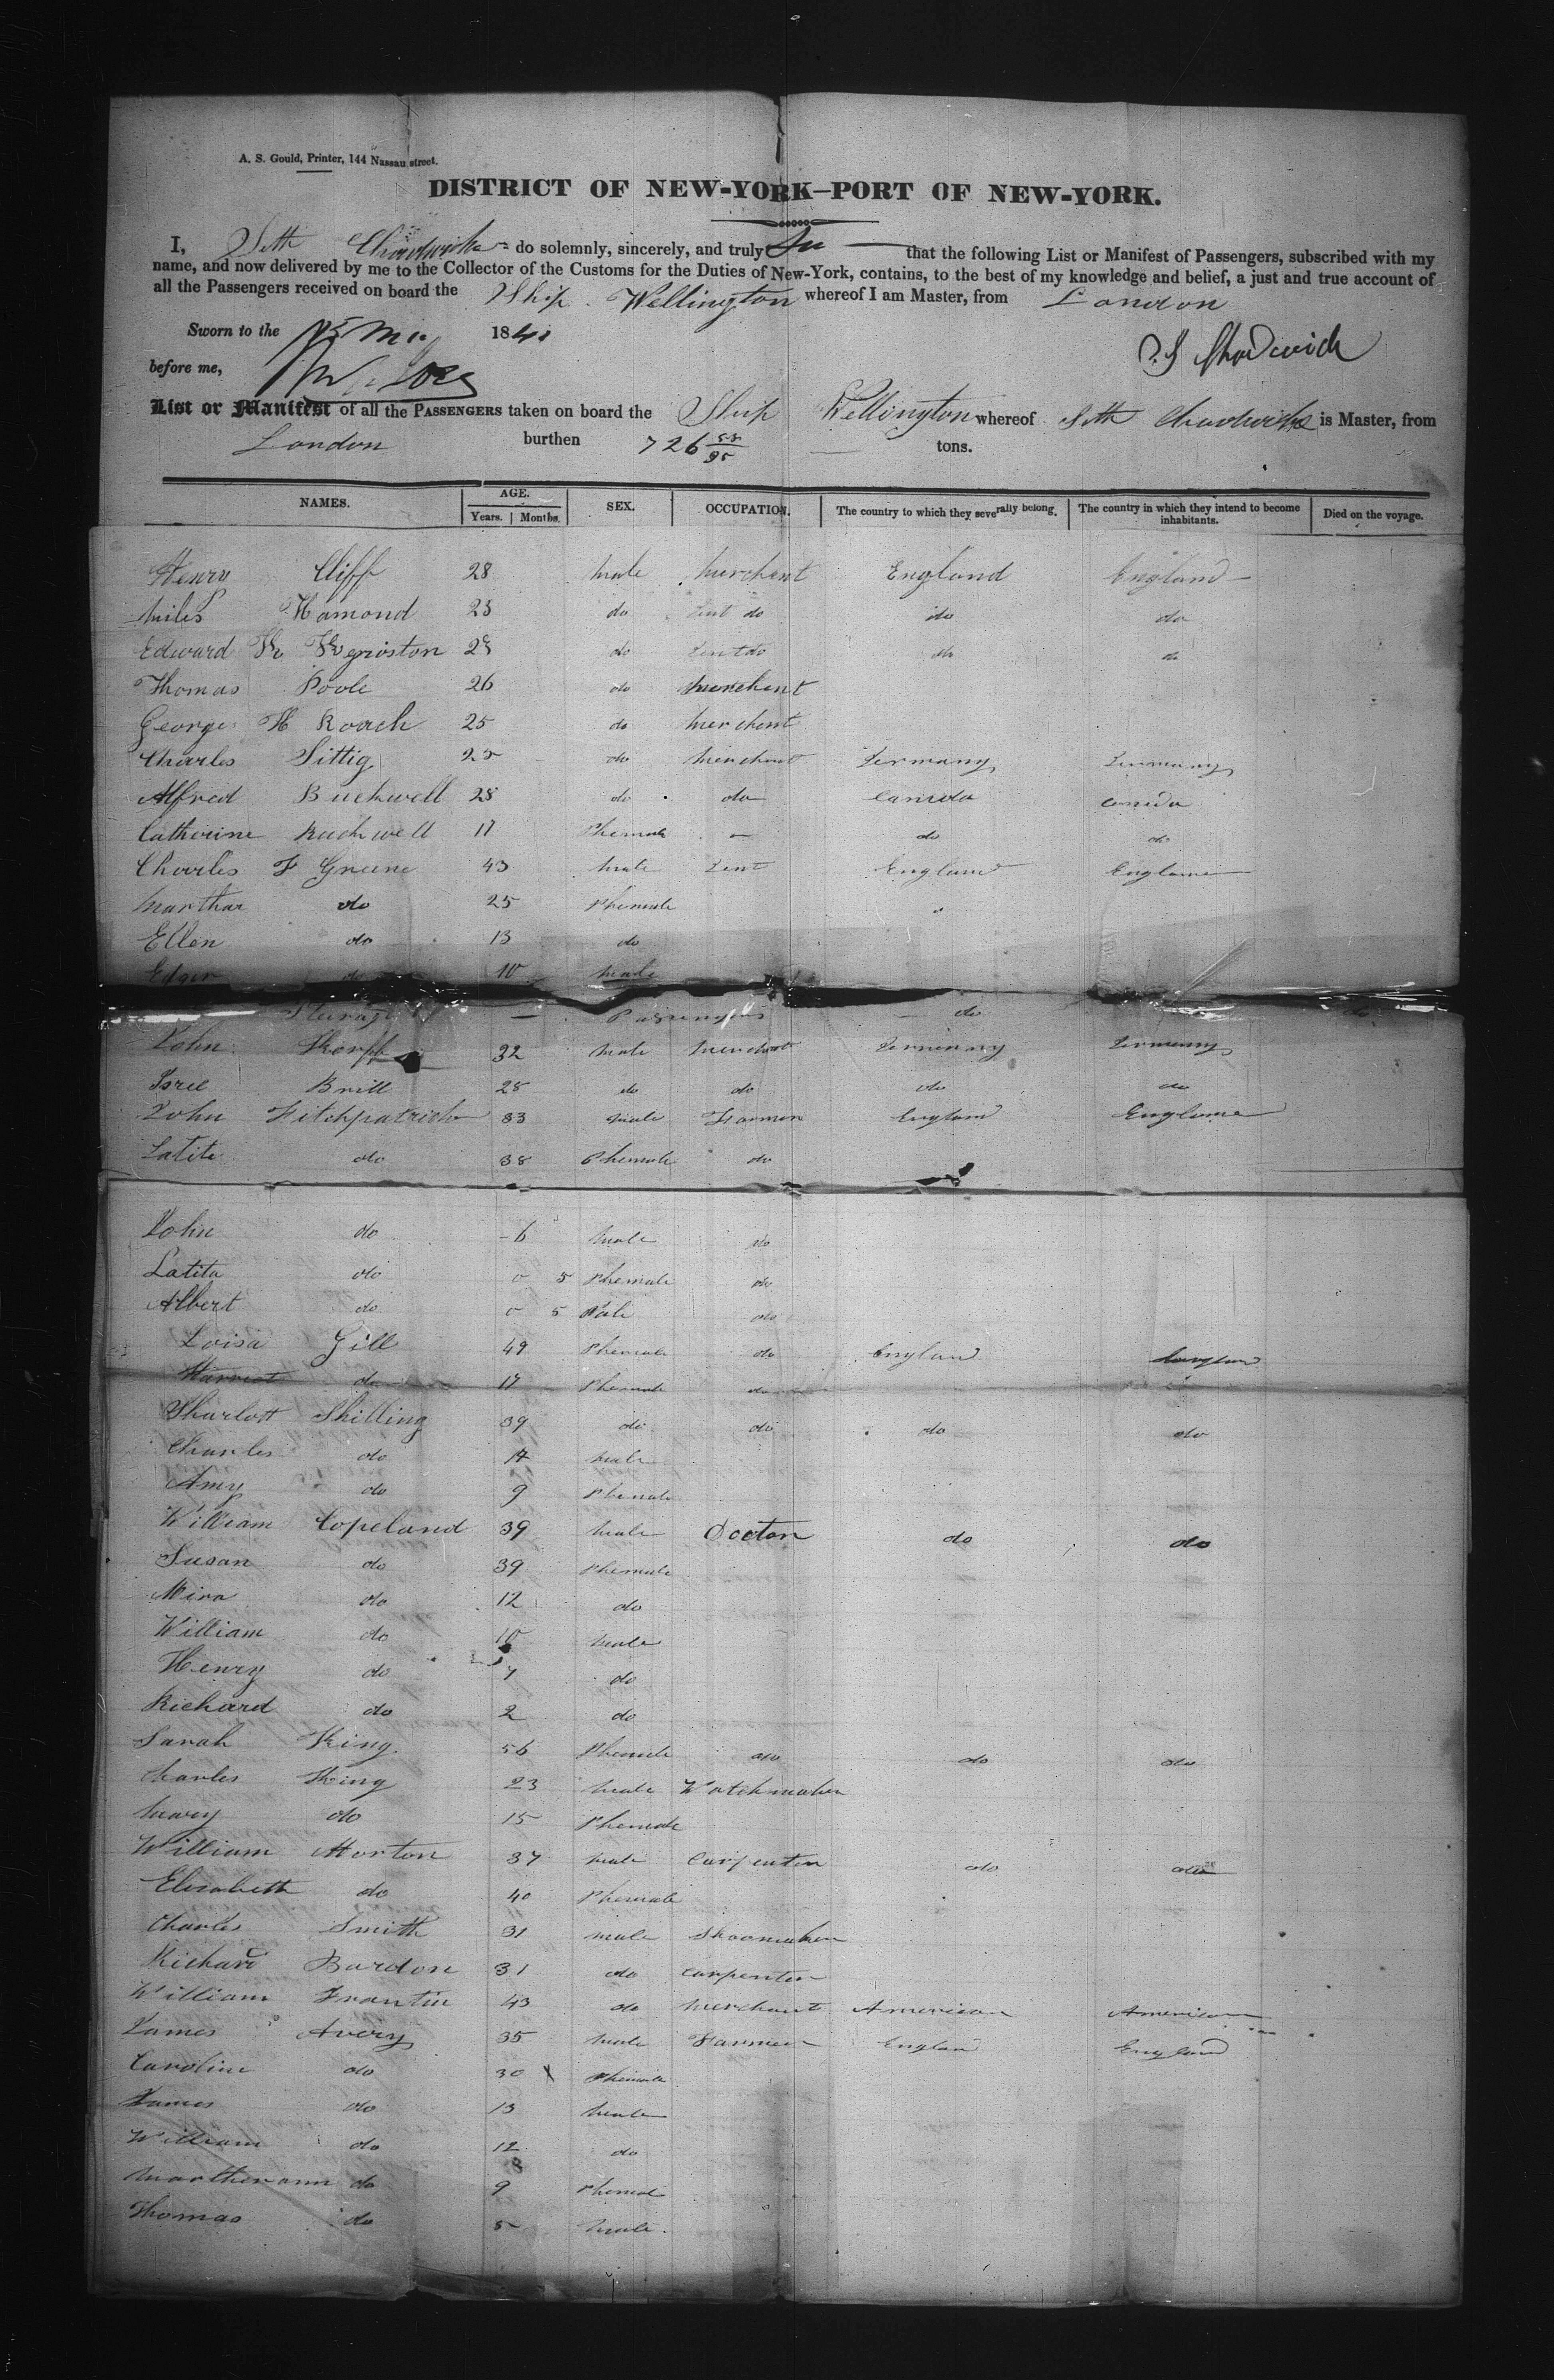 A. S. Gould, Printer, 144 Nassau street.
DISTRICT OF NEW-YORK—PORT OF NEW-YORK.
I, Seth Chadwick do solemnly, sincerely, and truly that the following List or Manifest of Passengers, subscribed with my
name, and now delivered by me to the Collector of the Customs for the Duties of New-York, contains, to the best of my knowledge and belief, a just and true account of
all the Passengers received on board the Ship Wellington whereof I am Master, from London
Sworn to the 184
S Chadwick
before me,
List or Manifest of all the PASSENGERS taken on board the Ship Wellington whereof Seth Chadwick is Master, from
London burthen 726 tons.
NAMES. AGE. SEX. OCCUPATION. The country to which they severally belong. The country in which they intend to become inhabitants. Died on the voyage.
Years. Months.
Henry Cliff 28 male merchant England England
Miles Hamond 25 do do do do
Edward do do do
Thomas Poole 26 do merchant
George H Roach 25 do merchant
Charles Sittig 25 do merchant Germany Germany
Alfred Buckwell 28 do do Canida Canida
Catherine Buckwell 17 Phemale — do do
Charles F Greene 43 male England England
Marthar do 25 Phemale
Ellen do 13 do
Edger do 10 male
Passengers do do
John 32 male merchant Germany Germany
Brill 28 do do do do
John Fitchpatrick 33 male Farmer England England
Latite do 38 Phemale do
John do 6 male do
Latita do 0 5 Phemale do
Albert do 0 5 Male do
Loisa Gill 49 Phemale do England England
Harriet do 17 Phemale do
Sharlott Shilling 39 do do do do
Charles do male
Amy do 9 Phemale
William Copeland 39 male Doctor do do
Susan do 39 Phemale
Mira do 12 do
William do 10 male
Henry do 7 do
Richard do 2 do
Sarah King 56 Phemale do do do
Charles King 23 male Watchmaker
Mary do 15 Phemale
William Morton 37 male Carpenter do do
Elisabeth do 40 Phemale
Charles Smith 31 male Shoomaker
Richard Burdon 31 do carpenter
William Frantin 43 do merchant American American
James Avery 35 male Farmer England England
Caroline do 30 Phemale
James do 13 male
William do 12 do
Martherann do 9 Phemal
Thomas do 5 male